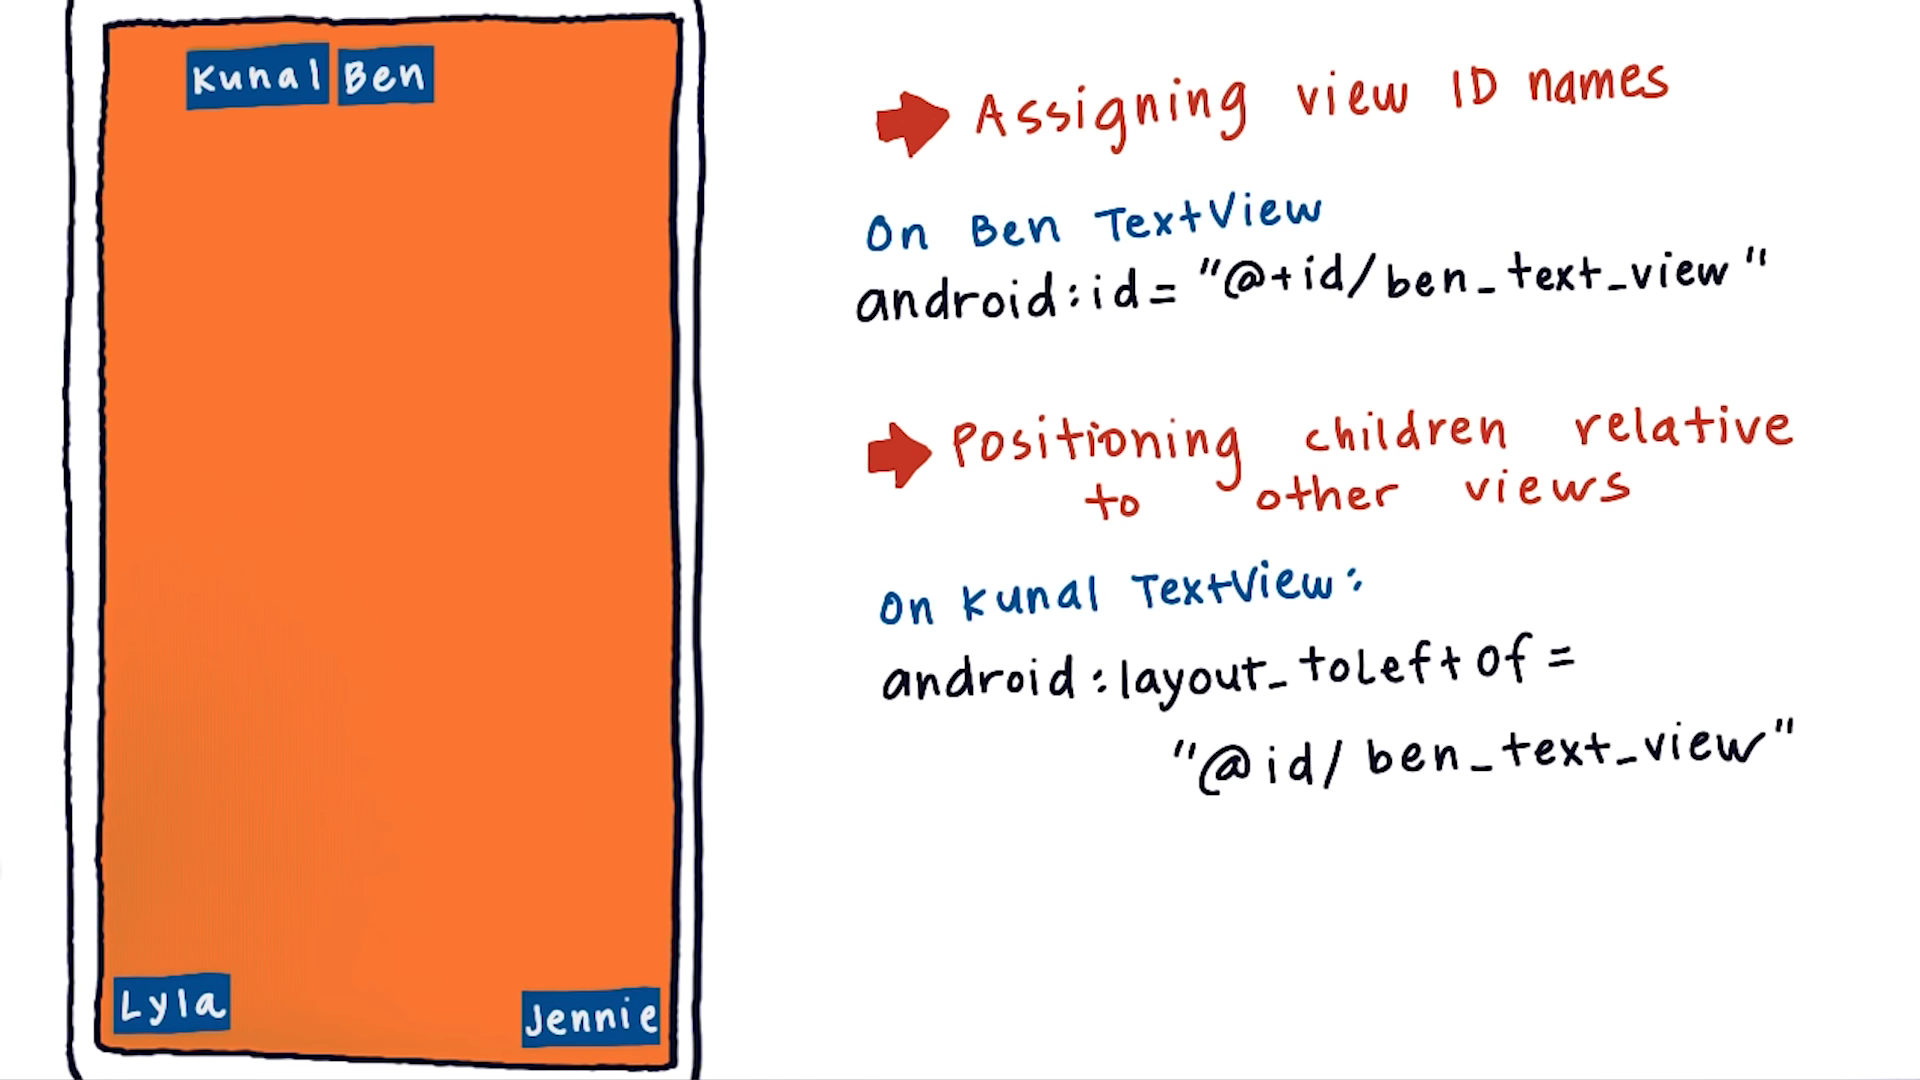 Kunal Ben
Lyla
Jennie
Assigning view ID names
On Ben TextView
android:id= "@+id/ben_text_view"
Positioning children relative
to other views
On Kunal TextView:
android:layout_toLeftOf=
"@id/ben_text_view"